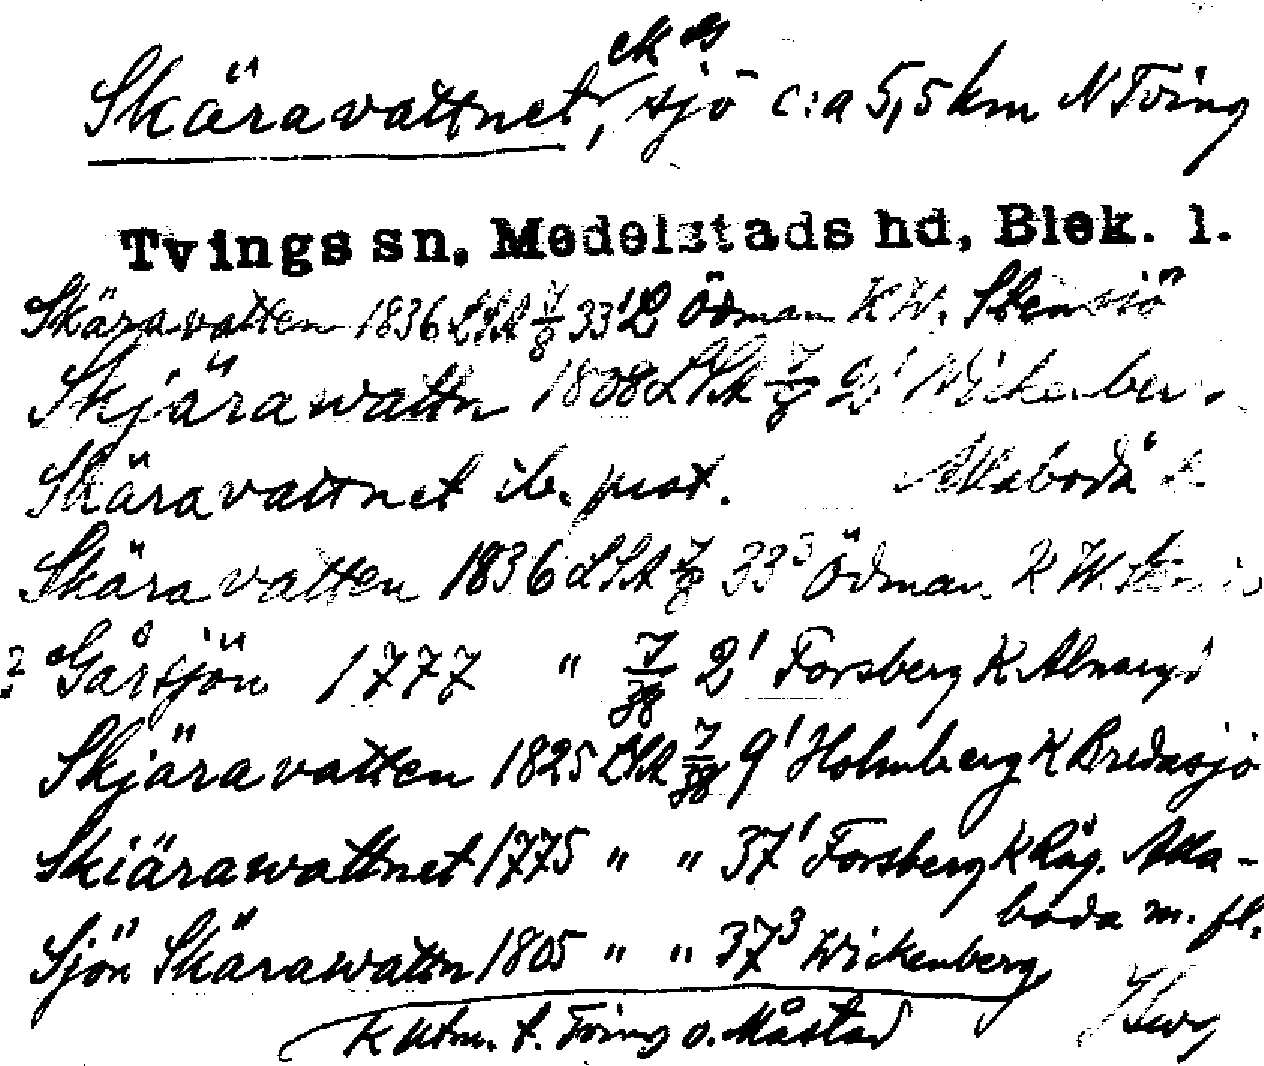 Skäravattnet, sjö c:a 5,5 km N Tving
Tvings sn, Medelstads hd, Blek. l.
Skäravatten 1836 LSA 7/8 33¹ Ödman K W. Stensjö
Skjärawattn 1808 LSA 2¹ Wickenberg
Skäravattnet ib. just. Allaboda
Skäravatten 1836 LSA 7/8 33³ Ödman K W.
? Gårsjön 1777 " 7/38 2¹ Forsberg K Alnaryd
Skjäravatten 1825 LSA 7/38 9¹ Holmberg K Bredasjö
Skiärawattnet 1775 " " 37¹ Forsberg K Råg. Alla-
boda m. fl.
Sjön Skärawattn 1805 " " 37³ Wickenberg
K Utm. t. Tving o. Måstad